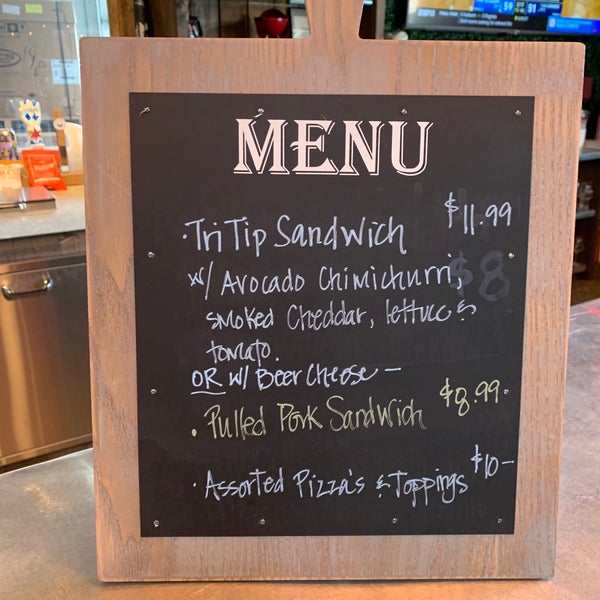 MENU
· Tri Tip Sandwich $11.99
w/ Avocado Chimichurri,
$8
smoked Cheddar, lettuce &
tomato.
OR w/ Beer Cheese –
· Pulled Pork Sandwich $8.99
· Assorted Pizza's & Toppings $10–